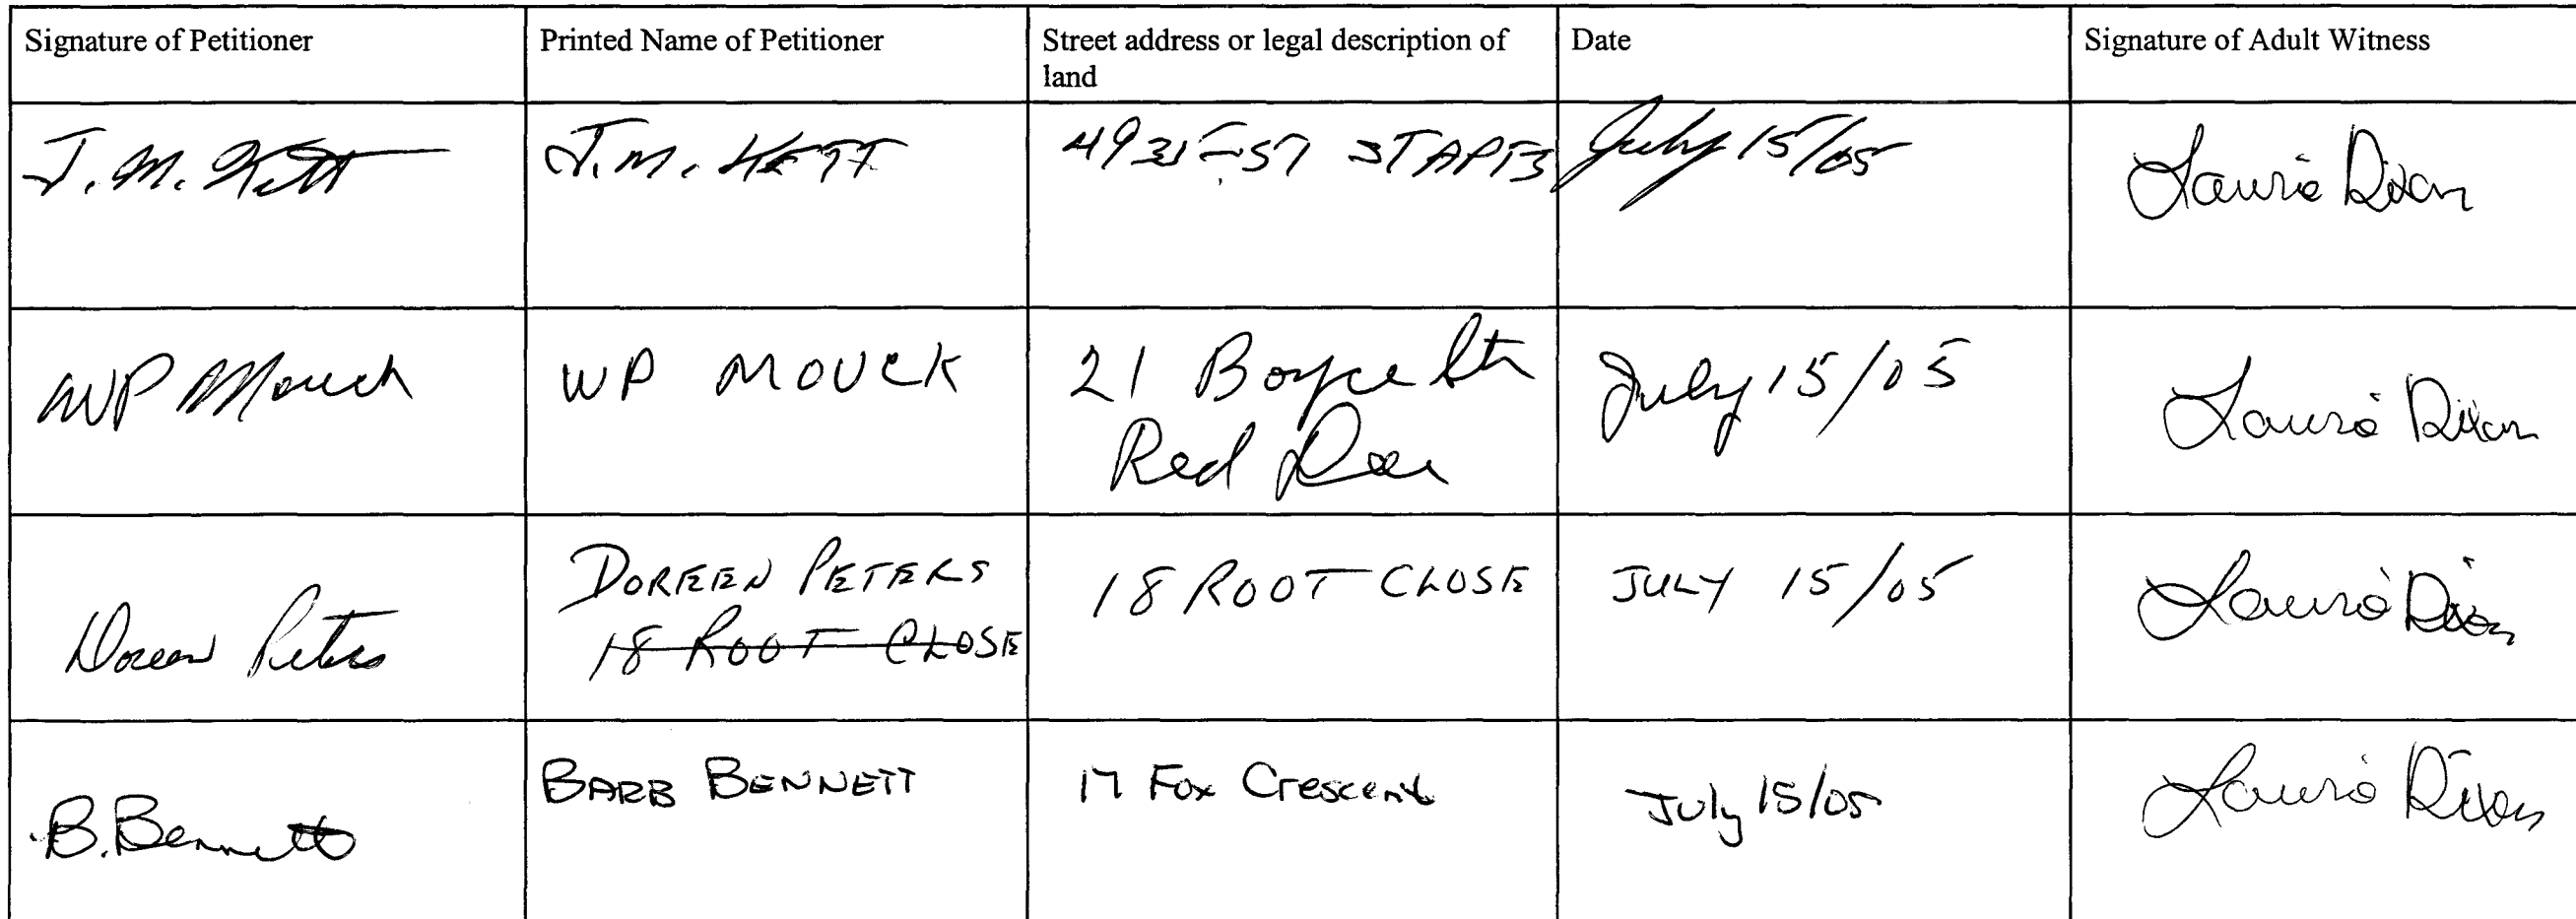 Signature of Petitioner
Printed Name of Petitioner
Street address or legal description of
land
Date
Signature of Adult Witness
J. M. Kett
J. M. KETT
4935-57 ST APT3
July 15/05
Laurie Dixon
WP Mouck
WP MOUCK
21 Boyce St
Red Deer
July 15/05
Laurie Dixon
Doreen Peters
DOREEN PETERS
18 ROOT CLOSE
18 ROOT CLOSE
JULY 15/05
Laurie Dixon
B. Bennett
BARB BENNETT
17 Fox Crescent
July 15/05
Laurie Dixon